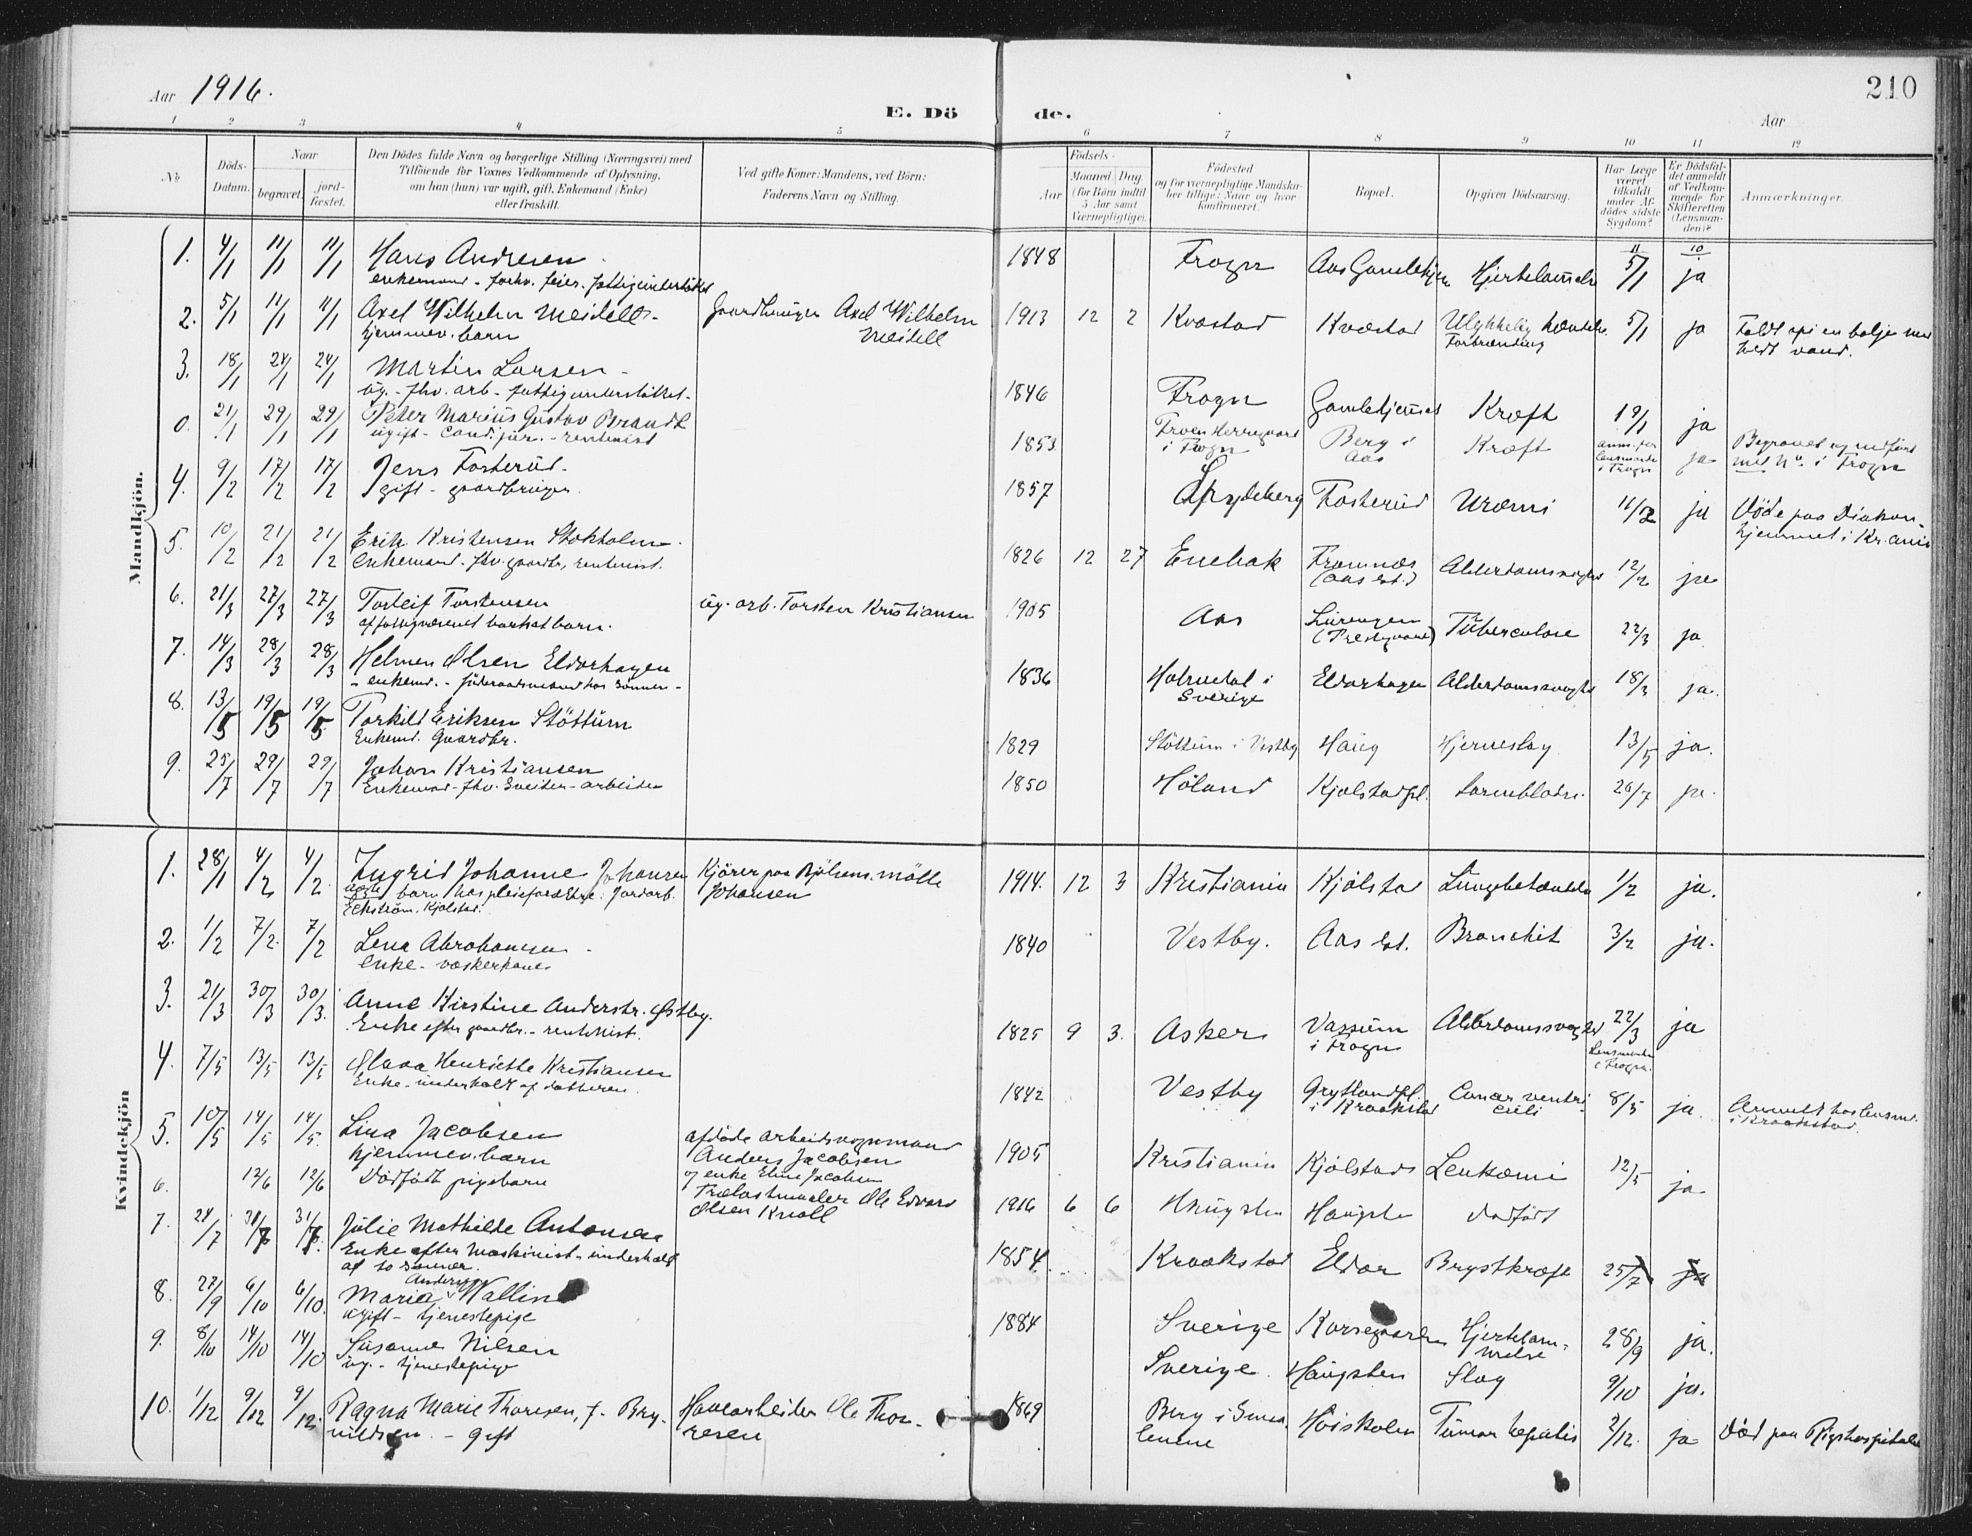 Aar 1916.
E. Dö de.
Aar
210
1 2 3 4 5 6 7 8 9 10 11 12
No
Döds-Datum.
Naar
begravet.
jord-fæstet.
Den Dödes fulde Navn og borgerlige Stilling (Næringsvei) med
Tilföiende for Voxnes Vedkommende af Oplysning,
om han (hun) var ugift, gift, Enkemand (Enke)
eller fraskilt.
Ved gifte Koner: Mandens, ved Börn:
Faderens Navn og Stilling.
Födsels-
Aar
Maaned. Dag.
(for Börn indtil
5 Aar samt
Værnepligtige).
Födested
og for værnepligtige Mandska-
ber tillige: Naar og hvor
konfirmeret.
Bopæl.
Opgiven Dödsaarsag.
Har Læge
været
tilkaldt
under Af-
dödes sidste
Sygdom?
Er Dödsfal-
det anmeldt
af Vedkom-
mende for
Skifteretten
(Lensman-
den)?
Anmærkninger.
Mandkjön.
1. 4/1 11/1 11/1 Hans Andresen 1848 Frogn Aas Gamlehjem Hjertelammelse 5/1 ja
enkemand - forhv. feier. fattigunderstøttet
2. 5/1 11/1 11/1 Axel Wilhelm Meidell - Gaardbruger Axel Wilhelm 1913 12 2 Kvæstad Kvæstad Ulykkelig hændelse 5/1 ja Faldt opi en balje med
hjemmev. barn Meidell Forbrænding hedt vand.
3. 18/1 24/1 24/1 Martin Larsen - 1846 Frogn Gamlehjemmet Kræft 19/1 ja
ug. - fhv. arb - fattigunderstöttet -
0. 21/1 29/1 29/1 Peter Marius Gustav Brandt 1853 Froen Herregaard Berg i Kræft ja Begravet og indført
ugift - cand. jur. - rentenist i Frogn Aas i Frogn med No. i Frogn
4. 9/2 17/2 17/2 Jens Fosterud - 1857 Spydeberg Fosterud Uræmi 11/2 ja Döde paa Diakon-
gift - gaardbruger. hjemmet i Kr.ania
5. 10/2 21/2 21/2 Erik Kristensen Stokholm 1826 12 27 Enebak Framnæs Alderdomssvaghed 12/2 ja
Enkemand - fhv. gaardbr, rentenist. (Aas st.)
6. 21/3 27/3 27/3 Torleif Torstensen ug. arb. Torsten Kristiansen 1905 Aas (Prestegaard) Tuberculose 22/3 ja
af fattigvæsenet bortsat barn.
7. 14/3 28/3 28/3 Helmer Olsen Eldorhagen 1836 Holmedal i Eldorhagen Alderdomssvaghed 18/3 ja.
- enkemd. - föderaadsmand hos sönnen - Sverige
8. 13/5 19/5 19/5 Torkild Eriksen Stöttum 1829 Stöttum i Vestby Haug Hjerneslag 13/5 ja.
Enkemd. Gaardbr.
9. 25/7 29/7 29/7 Johan Kristiansen 1850 Höland Kjølstadpl. 26/7 ja.
Enkemand - fhv. Sveiter - arbeider
Kvindekjön
1. 28/1 4/2 4/2 Ingrid Johanne Johansen Kjörer paa Bjölsens. mölle 1914. 12 3 Kristiania Kjölstad Lungebetændelse 1/2 ja.
barn hos pleieforældre: Jordarb. Johansen
Eckström. Kjölstad.
2. 1/2 7/2. 7/2 Lena Abrahamsen 1840 Vestby. Aas st. Bronchit 3/2 ja.
enke - vaskerkone
3. 21/3 30/3 30/3. Anne Kirstine Andersdr. Østby. 1825 9 3. Asker Vassum Alderdomssvaghed 22/3 ja
Enke efter gaardbr. - rentenist. i Frogn Lensmanden
i Frogn.
4. 7/5 13/5 13/5 Olava Henriette Kristiansen 1842 Vestby Gryttlandpl. Cancer ventri- 8/5 ja. Anmeldt hos lensmd.
Enke - underholdt af datteren. i Kraakstad culi i Kraakstad.
5. 10/5 14/5 14/5. Lina Jacobsen afdöde arbeidsvognmand 1905 Kristiania Kjölstad Leukæmi 12/5 ja
hjemmev. barn Anders Jacobsen
og enke Eline Jacobsen
6. 12/6 12/6 Dödfödt pigebarn Ole Edvard 1916 6 6 Haugsten Haugsten Dødfödt
Olsen Knoll
7. 24/7 31/7 31/7. Julie Mathilde Antonsen 1854. Kraakstad Eldor Brystkræft 25/7 ja
Enke efter Maskinist - underholdt
af to sönner.
8. 27/9 6/10 6/10. Maria Wallin 1884 Sverige Korsegaarden Hjertelam- 28/9 ja.
ugift - tjenestepige melse
9. 8/10 14/10 14/10 Susanne Nilsen Sverige. Haugsten Slag 9/10 ja.
ug. - tjenestepige
10. 1/12 9/12 9/12. Ragna Marie Thoresen, f. Bry- Havearbeider Ole Thor- 1869 Berg i Smaa- Höiskolen Tumor hepatis 2/12. ja Död paa Rigshospitalet
nildsen. - gift resen lenene